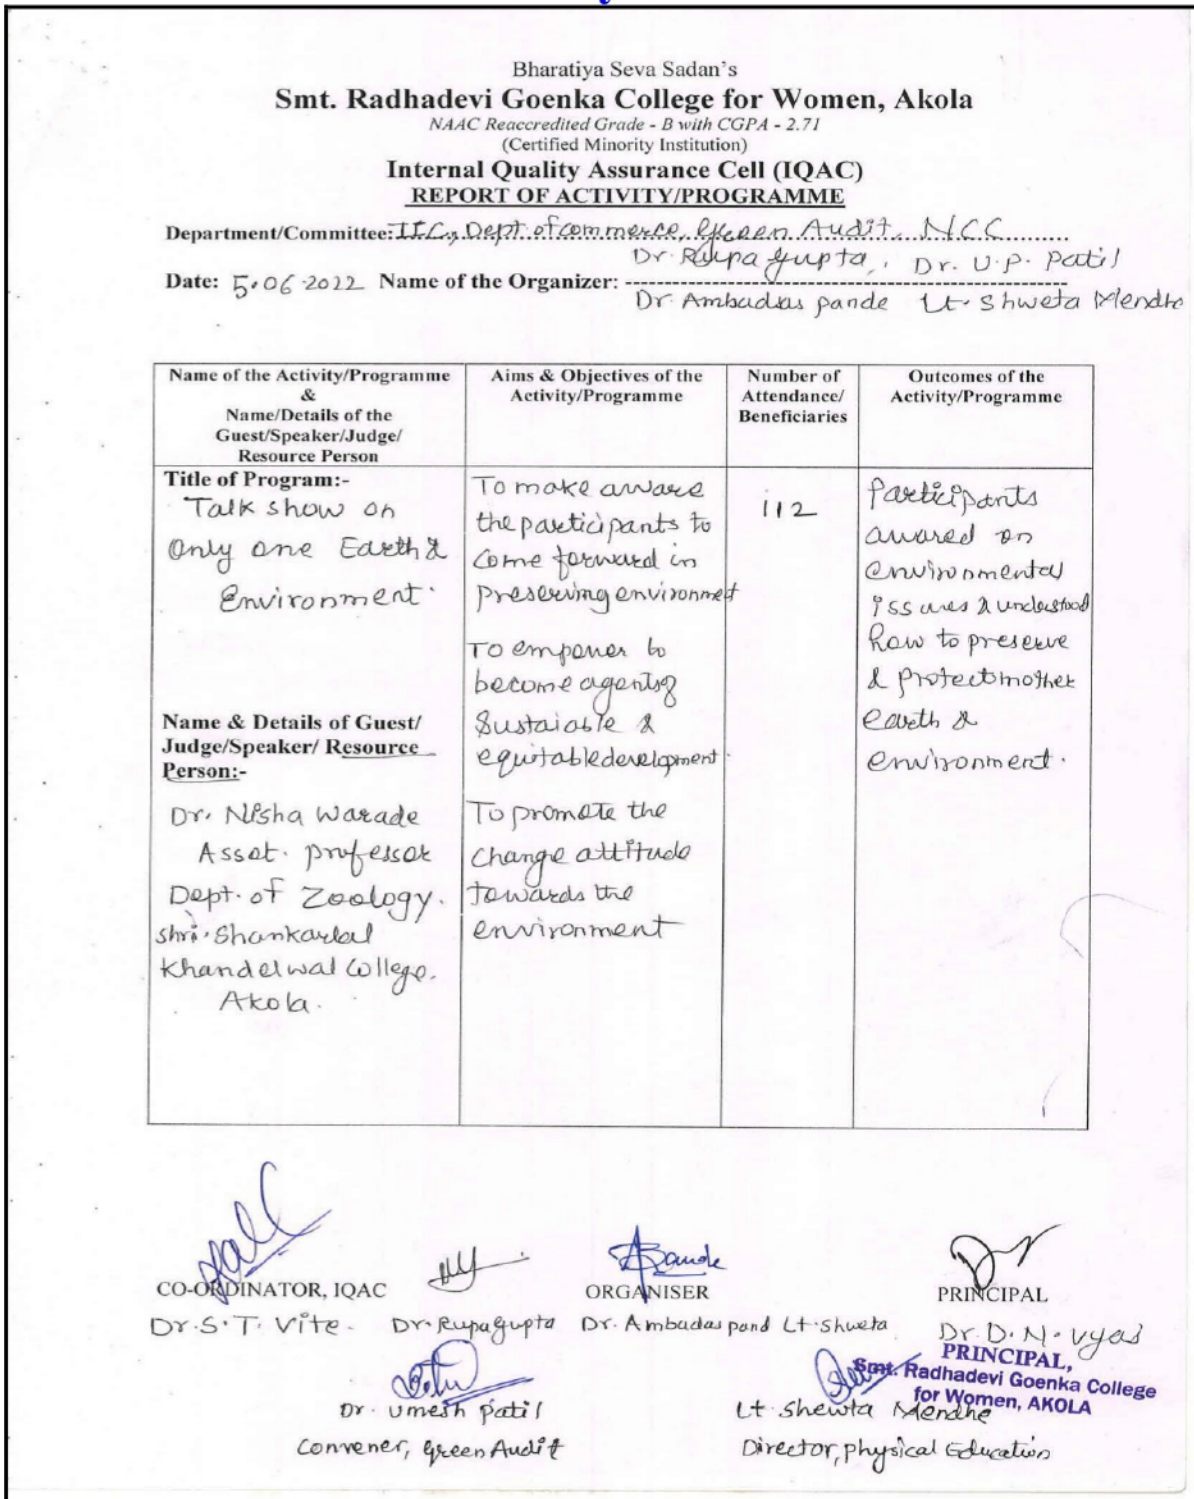 Bharatiya Seva Sadan's
Smt. Radhadevi Goenka College for Women, Akola
NAAC Reaccredited Grade - B with CGPA - 2.71
(Certified Minority Institution)
Internal Quality Assurance Cell (IQAC)
REPORT OF ACTIVITY/PROGRAMME
Department/Committee: IIC, Dept of commerce, Green Audit, NCC
Dr. Rupa Gupta, Dr. U.P. Patil
Date: 5.06.2022 Name of the Organizer:
Dr. Ambadas pande Lt. Shweta Mendhe
Name of the Activity/Programme
&
Name/Details of the
Guest/Speaker/Judge/
Resource Person
Aims & Objectives of the
Activity/Programme
Number of
Attendance/
Beneficiaries
Outcomes of the
Activity/Programme
Title of Program:-
Talk show on
Only one Earth &
Environment.
Name & Details of Guest/
Judge/Speaker/ Resource
Person:-
Dr. Nisha Warade
Asst. professor
Dept. of Zoology.
shri. Shankarlal
Khandelwal College.
Akola.
To make aware
the participants to
Come forward in
preserving environmet
To empower to
become agents of
Sustaiable &
equitable development.
To promote the
change attitude
towards the
environment
112
Participants
awared on
environmental
issues & understood
how to preserve
& protect mother
earth &
environment.
CO-ORDINATOR, IQAC
ORGANISER
PRINCIPAL
Dr. S. T. Vite. Dr. Rupa Gupta Dr. Ambadas pand Lt. Shweta Dr. D. N. Vyas
PRINCIPAL,
Smt. Radhadevi Goenka College
for Women, AKOLA
Dr. Umesh Patil
Convener, Green Audit
Lt. Shewta Mendhe
Director, physical Education